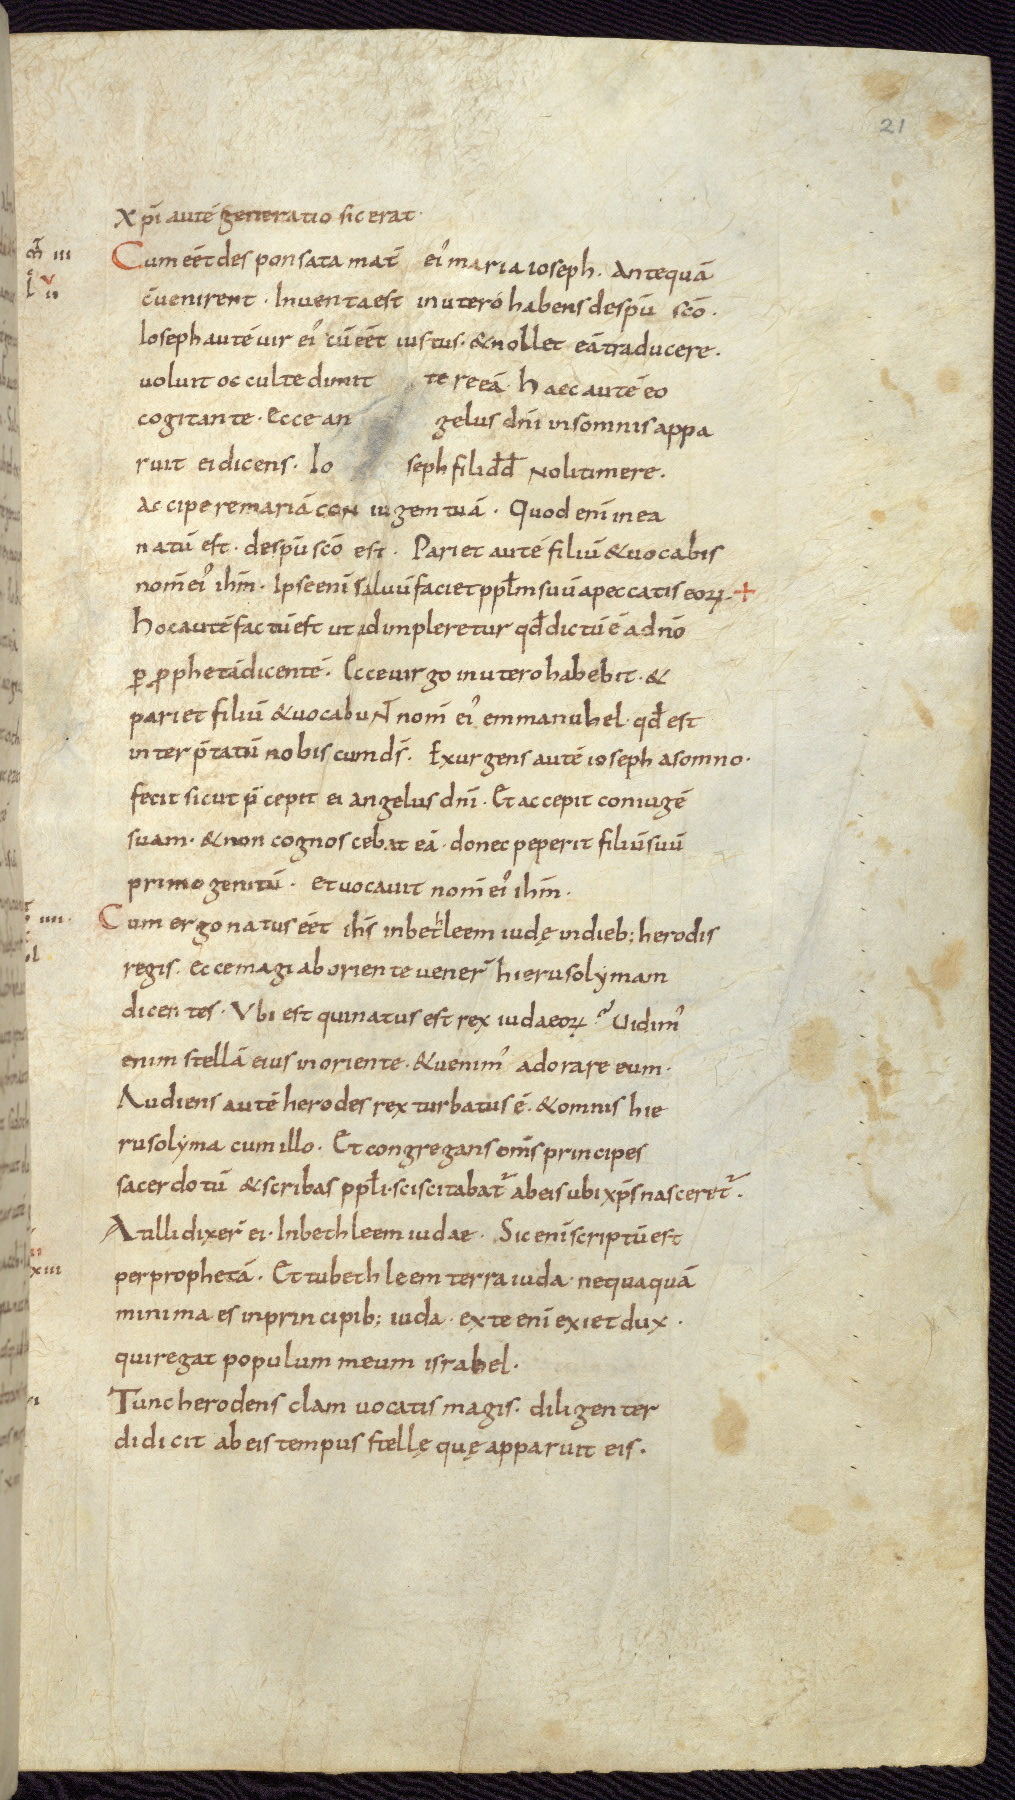 21
Xp̄i autē generatio sic erat·
m̄ iii
Cum eēt desponsata mat̄ ei᾽ maria ioseph. Antequā
l v
ii
c̄uenirent · Inventa est in utero habens de sp̄u sc̄o ·
Ioseph autē vir ei᾽ cū eēt iustus · & nollet eā traducere ·
uoluit occulte dimit te re eā · Haec autē eo
cogitante · Ecce an gelus dn̄i in somnis appa
ruit ei dicens · Io seph fili dd̄ Noli timere ·
Accipere mariā CON iugem tuā · Quod enī in ea
natū est · de sp̄u sc̄o est · Pariet autē filiū & vocabis
nom̄ ei᾽ ihm̄ · Ipse enī saluū faciet ppl̄m suū a peccatis eoꝝ +
Hoc autē factū est ut adimpleretur qd̄ dictū ē a dn̄o
ꝑ ꝓphetā dicentē · Ecce virgo in utero habebit · &
pariet filiū & vocabuN̄ nom̄ ei᾽ emmanuhel · qd̄ est
interp̄tatū nobiscum ds̄ · Exurgens autē ioseph a somno ·
fecit sicut p̄cepit ei angelus dn̄i · Et accepit coniugē
suam · & non cognoscebat eā · donec peperit filiū suū
primogenitū · et vocavit nom̄ ei᾽ ihm̄ ·
iiii ·
Cum ergo natus eēt ihs̄ in bethleem iudę in dieb; herodis
regis · ecce magi ab oriente vener̄ hierusolymam
dicentes · Vbi est qui natus est rex iudaeoꝝ ? Vidim᾽
enim stellā eius in oriente · & venim᾽ adorare eum ·
Audiens autē herodes rex turbatus ē · & omnis hie
rusolyma cum illo · Et congregans om̄s principes
sacerdotū & scribas ppl̄i · sciscitabat᷑ ab eis ubi xp̄s nasceret᷑ ·
At illi dixer̄ ei · In bethleem iudae · Sic enī scriptū est
xiii
per prophetā · Et tu bethleem terra iuda · nequaquā
minima es in principib; iuda · ex te enī exiet dux ·
qui regat populum meum israhel ·
Tunc herodens clam vocatis magis · diligenter
didicit ab eis tempus stellę quę apparuit eis ·